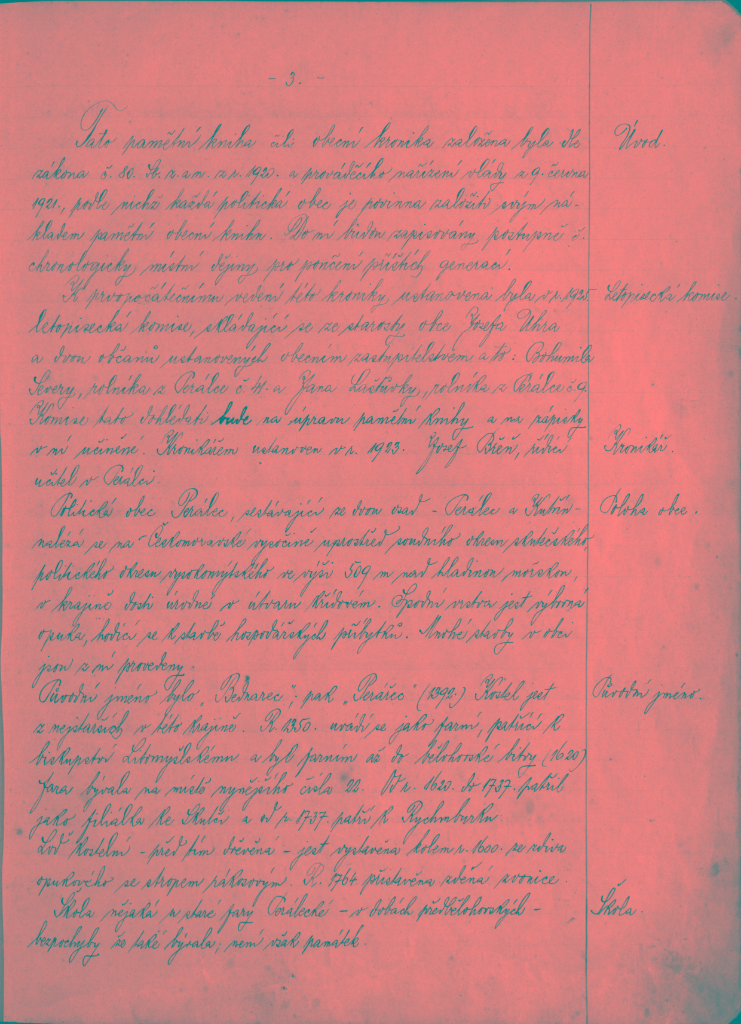 - 3. -
Tato pamětní kniha čili obecní kronika založena byla dle
Úvod.
zákona č. 80. Sb. z. a n. z r. 1920. a prováděcího nařízení vlády z 9. června
1921., podle nichž každá politická obec je povinna založiti svým ná-
kladem pamětní obecní knihu. Do ní budou zapisovány postupně č.
chronologicky, místní dějiny, pro poučení příštích generací.
K prvopočátečnímu vedení této kroniky, ustanovena byla v r. 1922
Letopisecká komise.
letopisecká komise, skládající se ze starosty obce Josefa Uhra
a dvou občanů ustanovených obecním zastupitelstvem a to: Bohumila
Severy, rolníka z Perálce č. 41. a Jana Laštůvky, rolníka z Perálce č. 9.
Komise tato dohlédati bude na úpravu pamětní knihy a na zápisky
v ní učiněné. Kronikářem ustanoven v r. 1923. Josef Břeň, řídící
Kronikář.
učitel v Perálci.
Politická obec Perálec, sestávající ze dvou osad - Perálec a Kutřín -
Poloha obce.
nalézá se na Českomoravské vysočině uprostřed soudního okresu skutečského,
politického okresu vysokomýtského ve výši 509 m nad hladinou mořskou,
v krajině dosti úrodné v útvaru křídovém. Spodní vrstva jest výborná
opuka, hodící se k stavbě hospodářských příbytků. Mnohé stavby v obci
jsou z ní provedeny.
Původní jméno bylo „Bednarec"; pak „Perářec" (1392.) Kostel jest
Původní jméno.
z nejstarších v této krajině. R. 1350. uvádí se jako farní, patřící k
biskupství Litomyšlskému a byl farním až do bělohorské bitvy (1620)
Fara bývala na místě nynějšího čísla 22. Od r. 1620. do 1737. patřil
jako filiálka ke Skutči a od r. 1737. patří k Rychmburku.
Loď kostelní - před tím dřevěná - jest vystavěna kolem r. 1600. ze zdiva
opukového se stropem rákosovým. R. 1764. přistavěna zděná zvonice.
Škola nějaká u staré fary Perálecké - v dobách předbělohorských -
Škola.
bezpochyby že také bývala; není však památek.